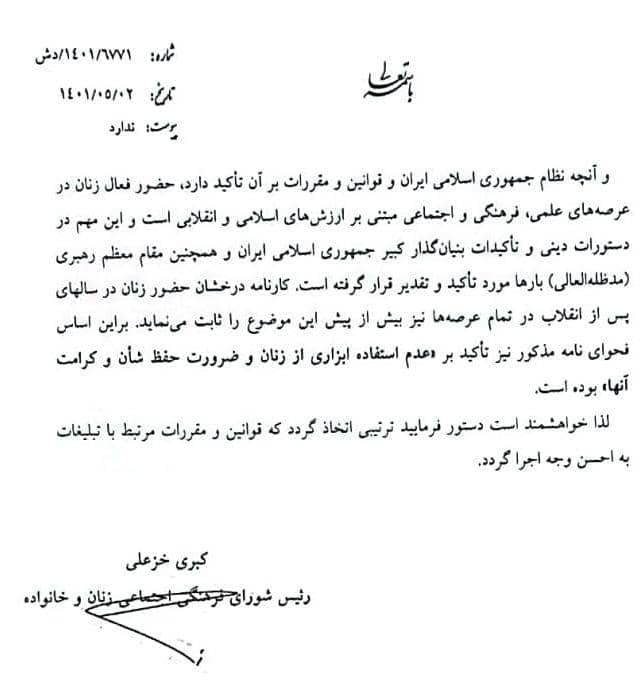 باسمه تعالی
شماره: ۱۴۰۱/۶۷۷۱/دش
تاریخ: ۱۴۰۱/۰۵/۰۲
پیوست: ندارد
و آنچه نظام جمهوری اسلامی ایران و قوانین و مقررات بر آن تأکید دارد، حضور فعال زنان در
عرصه‌های علمی، فرهنگی و اجتماعی مبتنی بر ارزش‌های اسلامی و انقلابی است و این مهم در
دستورات دینی و تأکیدات بنیان‌گذار کبیر جمهوری اسلامی ایران و همچنین مقام معظم رهبری
(مدظله‌العالی) بارها مورد تأکید و تقدیر قرار گرفته است. کارنامه درخشان حضور زنان در سالهای
پس از انقلاب در تمام عرصه‌ها نیز بیش از پیش این موضوع را ثابت می‌نماید. براین اساس
فحوای نامه مذکور نیز تأکید بر «عدم استفاده ابزاری از زنان و ضرورت حفظ شأن و کرامت
آنها» بوده است.
لذا خواهشمند است دستور فرمایید ترتیبی اتخاذ گردد که قوانین و مقررات مرتبط با تبلیغات
به احسن وجه اجرا گردد.
کبری خزعلی
رئیس شورای فرهنگی اجتماعی زنان و خانواده